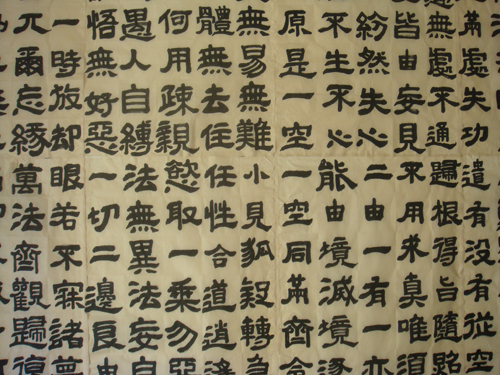 滿虛失功遣有沒有從空
無處不通歸根得旨隨照
皆由妄見不用求真唯須
紛然失心二由一有一亦
不生不心能由境滅境逐
原是一空一空同滿齊含
無易無難小見狐疑轉急
體無去住任性合道逍遙
何用疎親慾取一乘勿惡
愚人自縛法無異法妄自
悟無好惡一切二邊良由
一時放却眼若不寐諸夢
兀爾忘緣萬法齊觀歸復